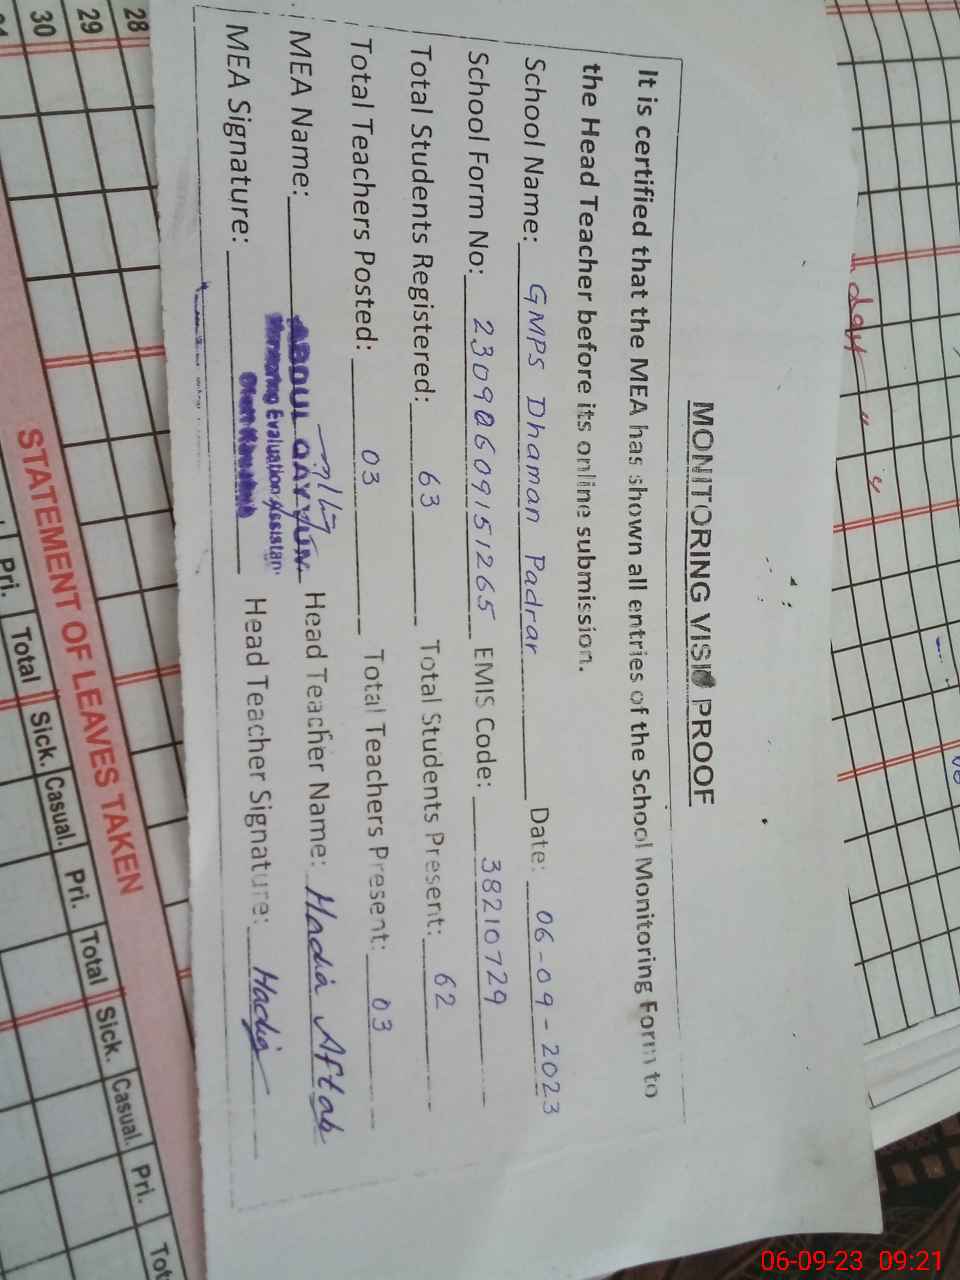 MONITORING VISIT PROOF
It is certified that the MEA has shown all entries of the School Monitoring Form to
the Head Teacher before its online submission.
School Name: GMPS Dhaman Padrar Date: 06-09-2023
School Form No: 2309060915 1265 EMIS Code: 38210729
Total Students Registered: 63 Total Students Present: 62
Total Teachers Posted: 03 Total Teachers Present: 03
MEA Name: ABDUL QAYYUM Head Teacher Name: Hadia Aftab
Monitoring Evaluation Assistant
MEA Signature: Head Teacher Signature: Hadia
STATEMENT OF LEAVES TAKEN
Pri. Total Sick. Casual. Pri. Total Sick. Casual. Pri. Tot
28
29
30
06-09-23 09:21